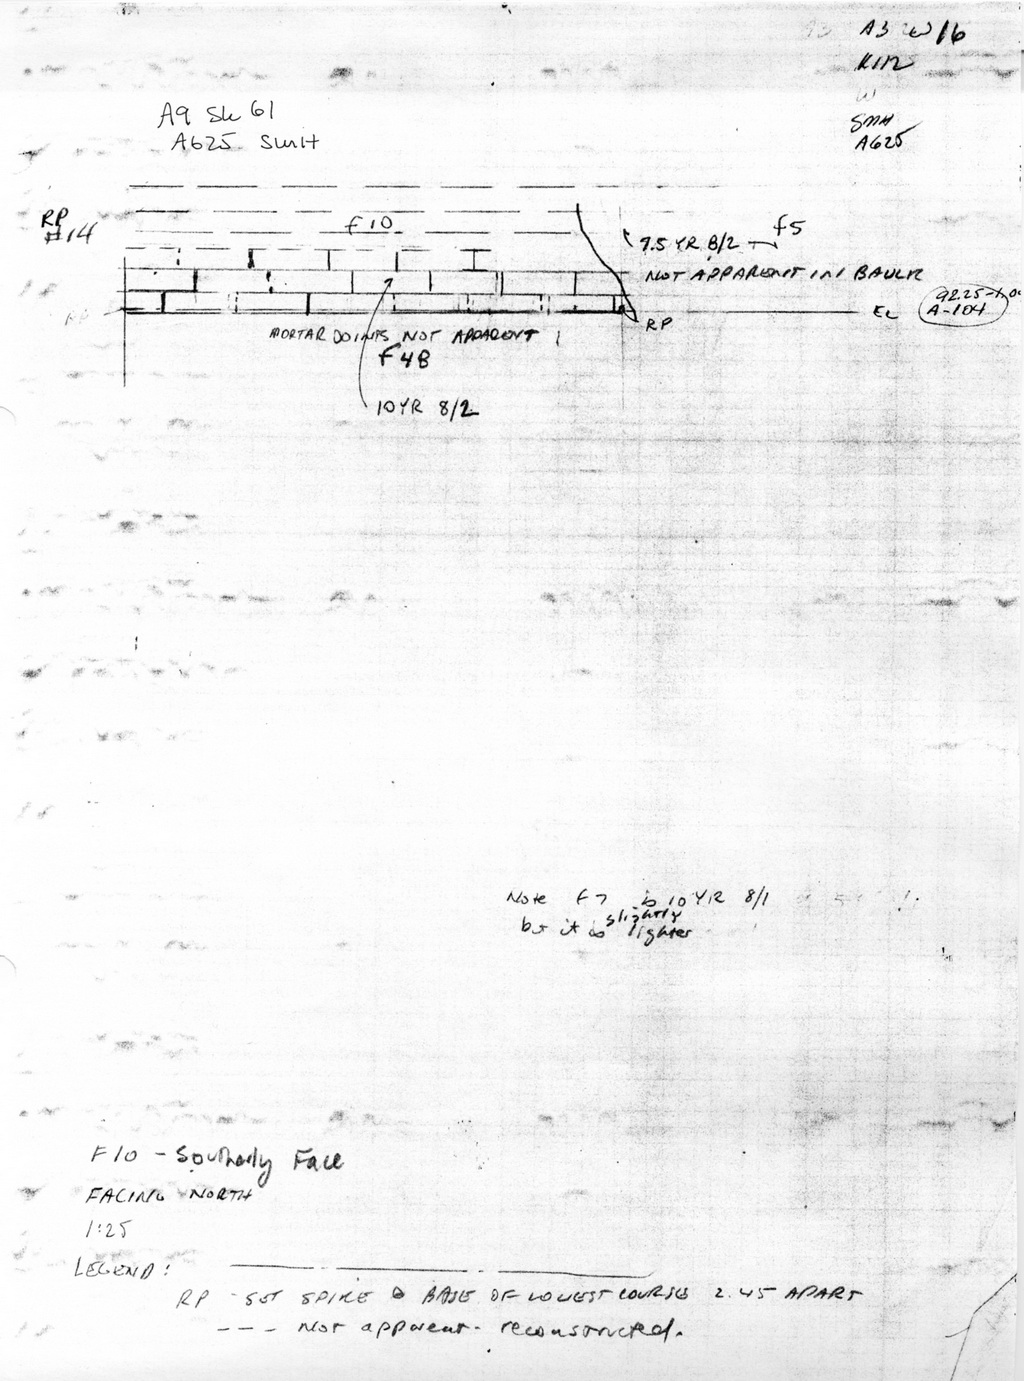 A3 W16
KM
SMH
A625
A9 Sk 61
A625 SMH
RP
#14
F10
7.5 YR 8/2 F5
NOT APPARENT IN BAULK
EL
92.25-1.0
A-104
RP
RP
MORTAR JOINTS NOT APPARENT
F48
10YR 8/2
Note F7 is 10 YR 8/1
but it is slightly lighter
F10 - Southerly Face
FACING NORTH
1:25
LEGEND:
RP - SET SPIKE @ BASE OF LOWEST COURSE 2.45 APART
--- NOT apparent - reconstructed.